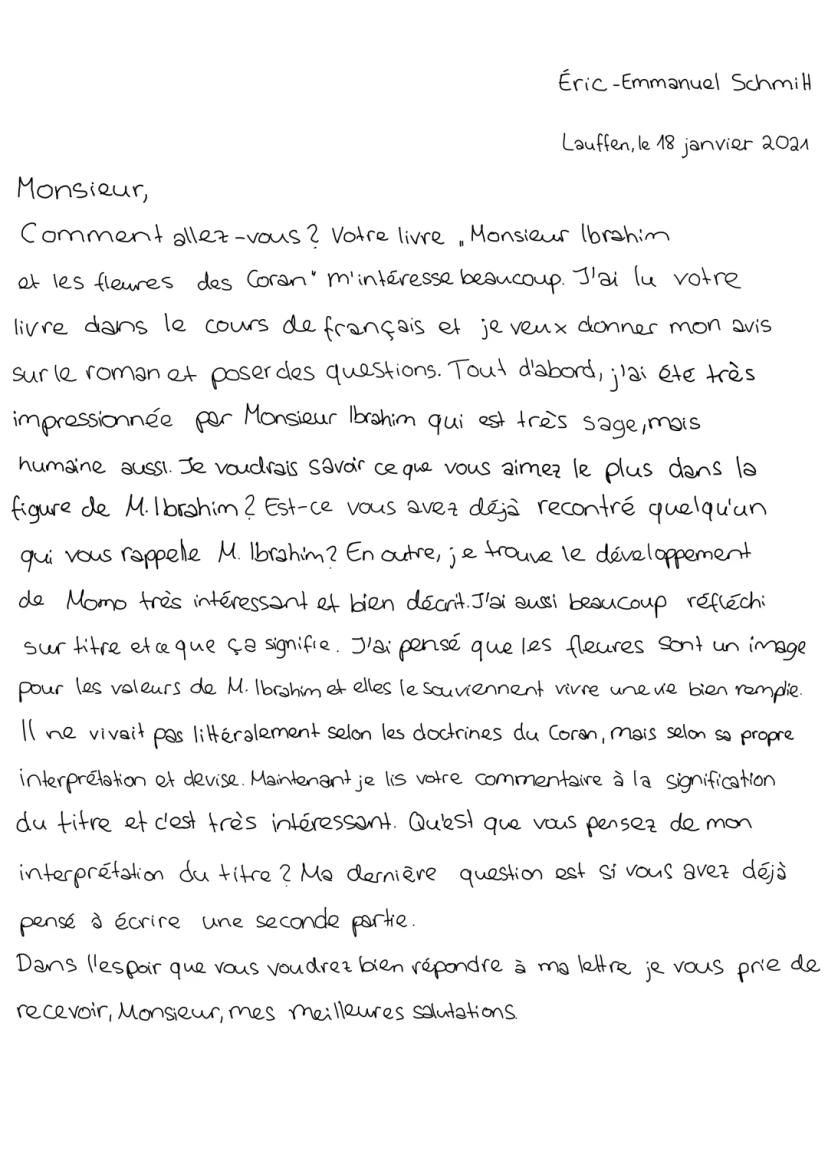 Éric-Emmanuel Schmitt
Lauffen, le 18 janvier 2021
Monsieur,
Comment allez-vous? Votre livre „Monsieur Ibrahim
et les fleures des Coran" m'intéresse beaucoup. J'ai lu votre
livre dans le cours de français et je veux donner mon avis
sur le roman et poser des questions. Tout d'abord, j'ai été très
impressionnée par Monsieur Ibrahim qui est très sage, mais
humaine aussi. Je voudrais savoir ce que vous aimez le plus dans la
figure de M. Ibrahim? Est-ce vous avez déjà recontré quelqu'un
qui vous rappelle M. Ibrahim? En outre, je trouve le développement
de Momo très intéressant et bien décrit. J'ai aussi beaucoup réfléchi
sur titre et ce que ça signifie. J'ai pensé que les fleures sont un image
pour les valeurs de M. Ibrahim et elles le souviennent vivre une vie bien remplie.
Il ne vivait pas littéralement selon les doctrines du Coran, mais selon sa propre
interprétation et devise. Maintenant je lis votre commentaire à la signification
du titre et c'est très intéressant. Qu'est que vous pensez de mon
interprétation du titre? Ma dernière question est si vous avez déjà
pensé à écrire une seconde partie.
Dans l'espoir que vous voudrez bien répondre à ma lettre je vous prie de
recevoir, Monsieur, mes meilleures salutations.